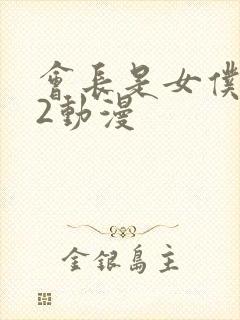 會長是女僕
2動漫
金銀島主